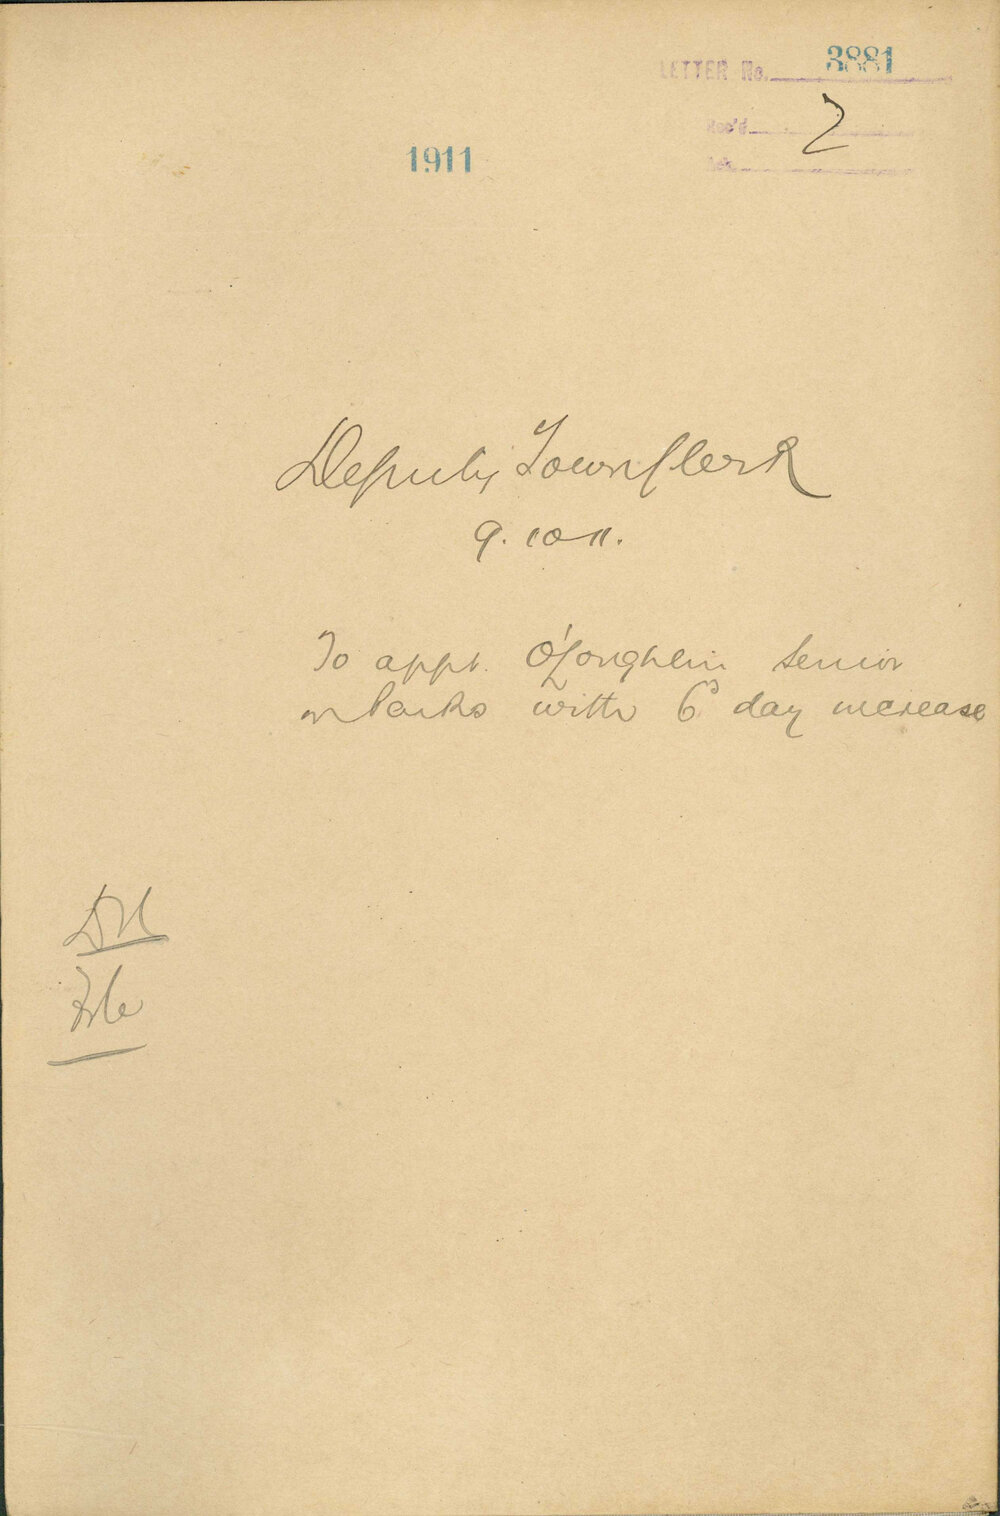 LETTER No. 3881
Rec'd
Ack.
1911
Deputy Town Clerk
9.10.11.
To appt. O'Loughlin Senior
on Parks with 6d day increase
File